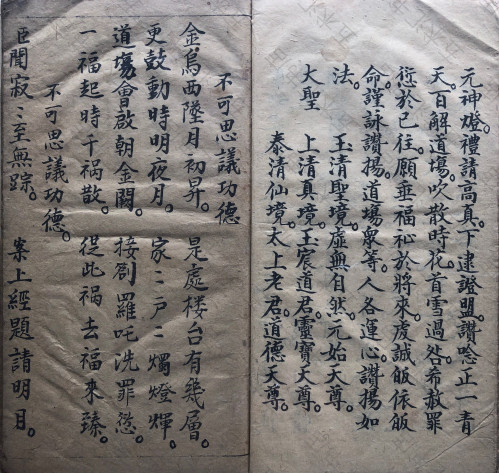 元神燈。禮請高真。下逮證盟。讚唸正一青
天。百解道塲。吹散時花首雪過咎。希赦罪
愆於已往。願垂福祉於將來。虔誠皈依皈
命。謹詠讚揚。道塲衆等。人各運心。讚揚如
法。
大聖
玉清聖境。虛無自然。元始天尊。
上清真境。玉宸道君。靈寶天尊。
泰清仙境。太上老君。道德天尊。
不可思議功德
金烏西墜月初昇。是處楼台有幾層。
更鼓動時明夜月。家〻戸〻燭燈燁。
道塲會啟朝金闕。接劄羅吒洗罪愆。
一福起時千禍散。從此禍去福來臻。
不可思議功德。
臣聞寂〻至無踪。案上經題請明目。